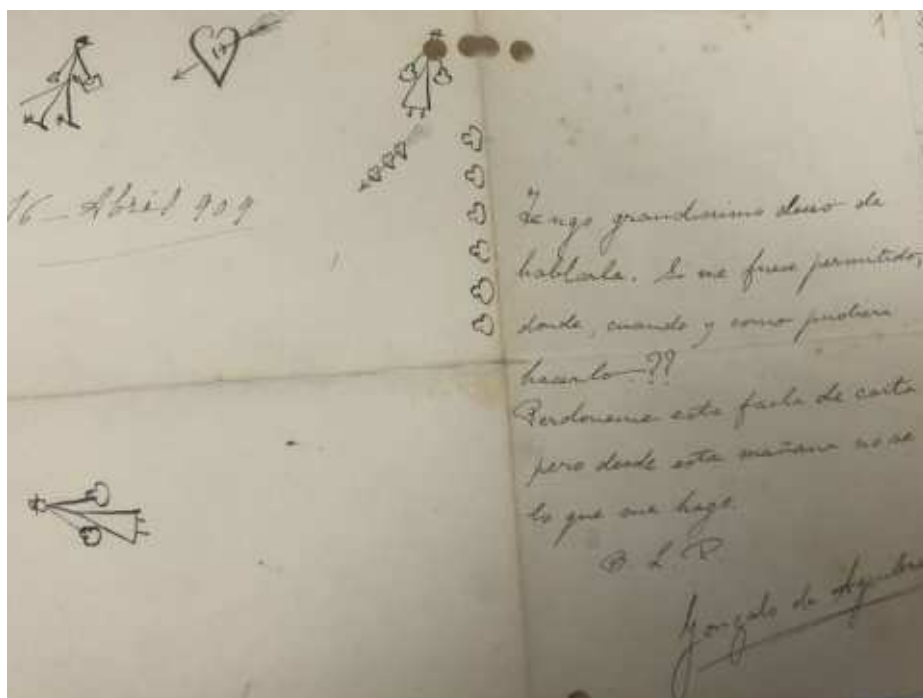 17
16 - Abril 909
Tengo grandisimo deseo de
hablarla. Si me fuese permitido,
donde, cuando y como pudiera
hacerlo??
Perdoneme esta facha de carta
pero desde esta mañana no se
lo que me hago.
B L P
Gonzalo de Aguilera